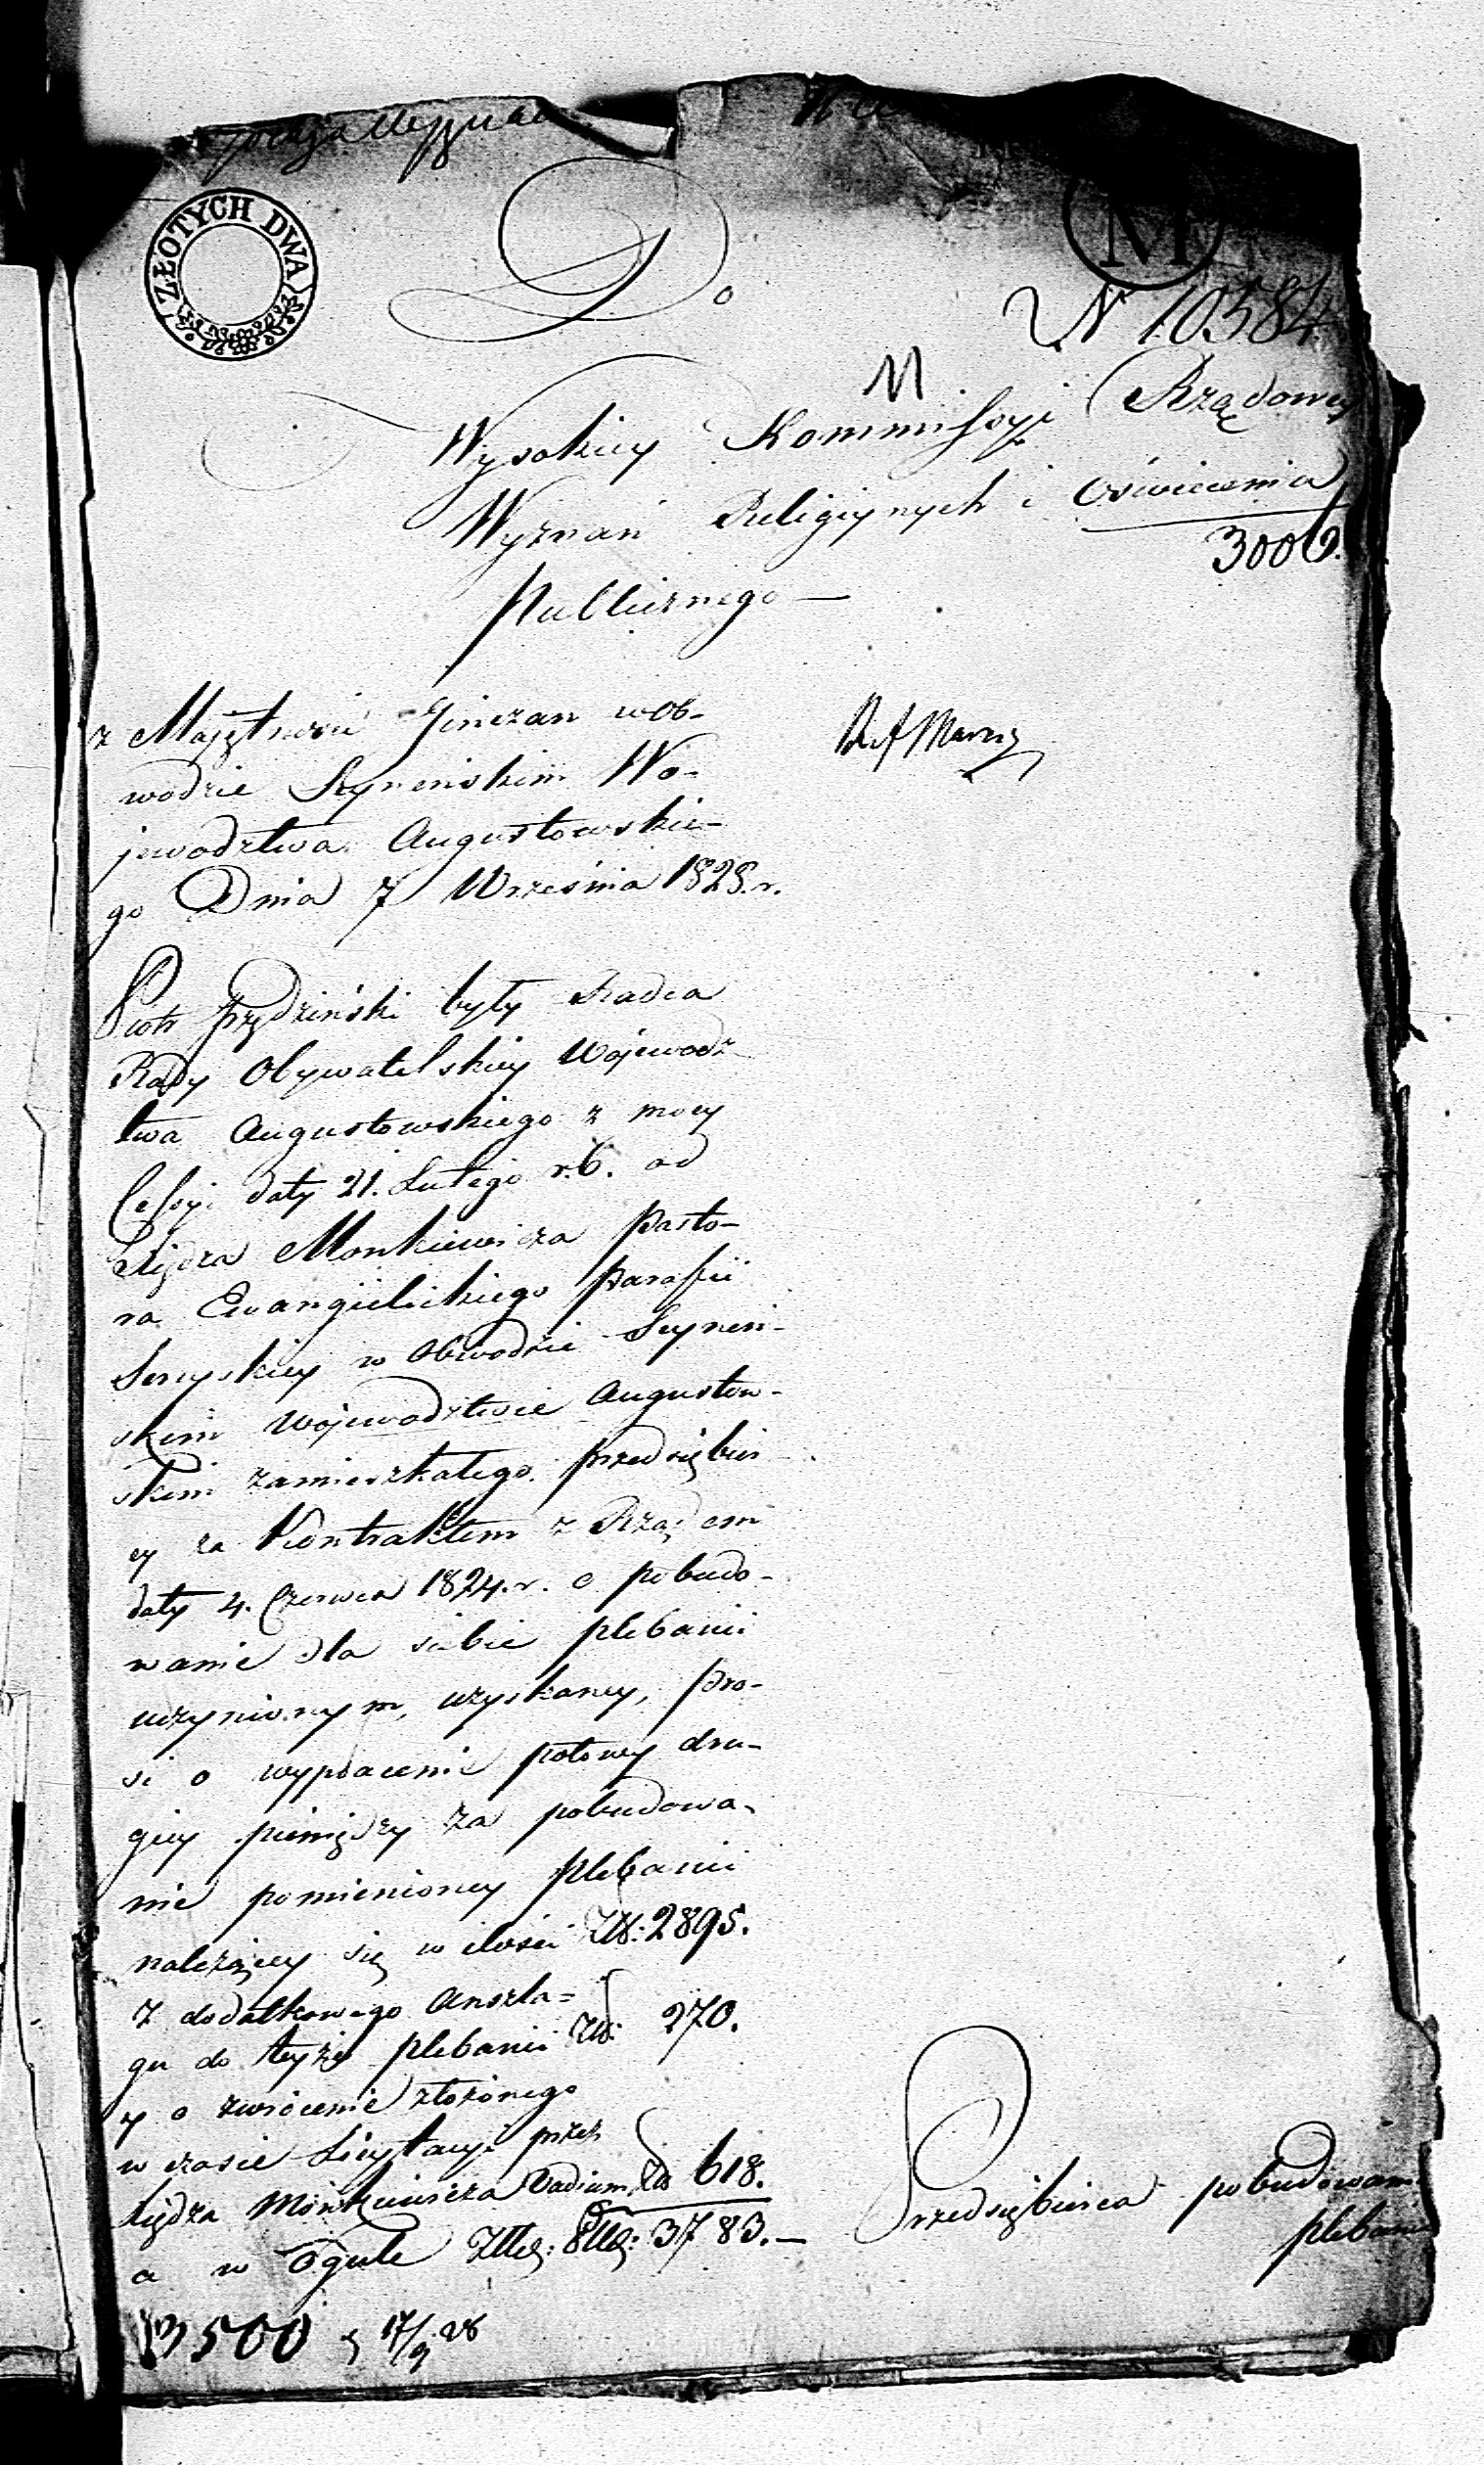 ZŁOTYCH DWA
Do
M
N 10584
M
Wysokiey Kommissyi Rządowey
Wyznań Religiynych i Oświecenia
3006.
Publicznego —
z Majętności Ginczan wob-
wodzie Seynenskim Wo-
jewodztwa Augustowskie-
go Dnia 7 Września 1828. r.
Piotr były Radca
Rady Obywatelskiey Wojewodz-
twa Augustowskiego z mocy
Cessyi daty 21. Lutego r. b. od
Xiędza Monkiewicza Pasto-
ra Ewangielickiego parafii
Sereyskiey w Obwodzie Seynen-
skim Wojewodztwie Augustow-
skim zamieszkałego przedsiębier-
cy za Kontraktem z Rządem
daty 4. Czerwca 1824. r. o pobudo-
wanie dla siebie plebanii
uczynionym, uzyskaney, pro-
si o wypłacenie połowy dru-
giey pieniędzy za pobudowa-
nie pomienioney plebanii
należącey się w ilości Zł: 2895.
z dodatkowego Anszla=
gu do teyże plebanii Zł: 270.
y o zwrócenie złożonego
w czasie Licytacyi przez
Xiędza Monkiewicza Vadium Zł 618.
a w Ogule 3783. —
Przedsiębierca pobudowani
plebanii
3500 17/9 28